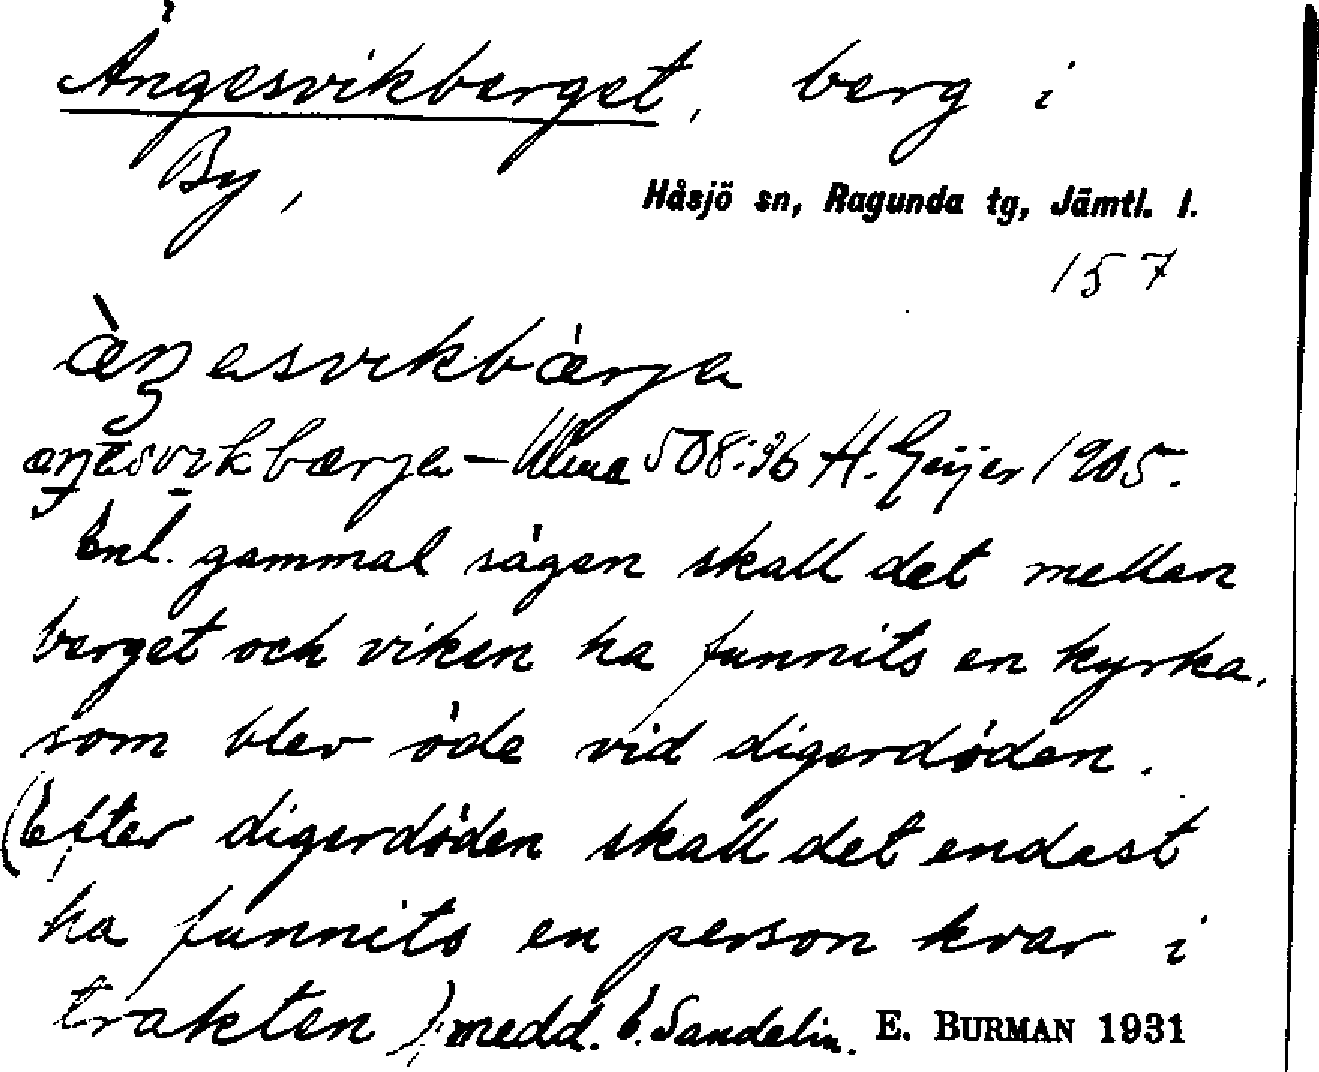 Ängesvikberget, berg i
By,
Håsjö sn, Ragunda tg, Jämtl. l.
157
æ̀ŋesvikbærja
æŋesvikbærja – 508:36 H. Geijer 1905.
Enl. gammal sägen skall det mellan
berget och viken ha funnits en kyrka,
som blev öde vid digerdöden.
(Efter digerdöden skall det endast
ha funnits en person kvar i
trakten); medd. E. Sandelin. E. BURMAN 1931